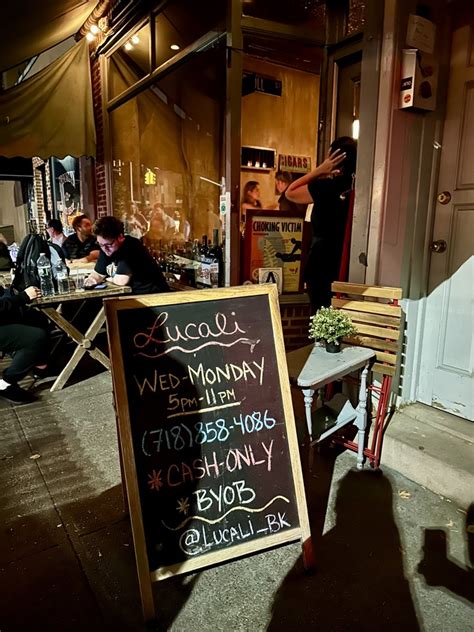 CIGARS
CHOKING
VICTIM
Lucali
WED-MONDAY
5PM-11PM
(718) 858-4086
*CASH-ONLY
*BYOB
@LUCALI_BK